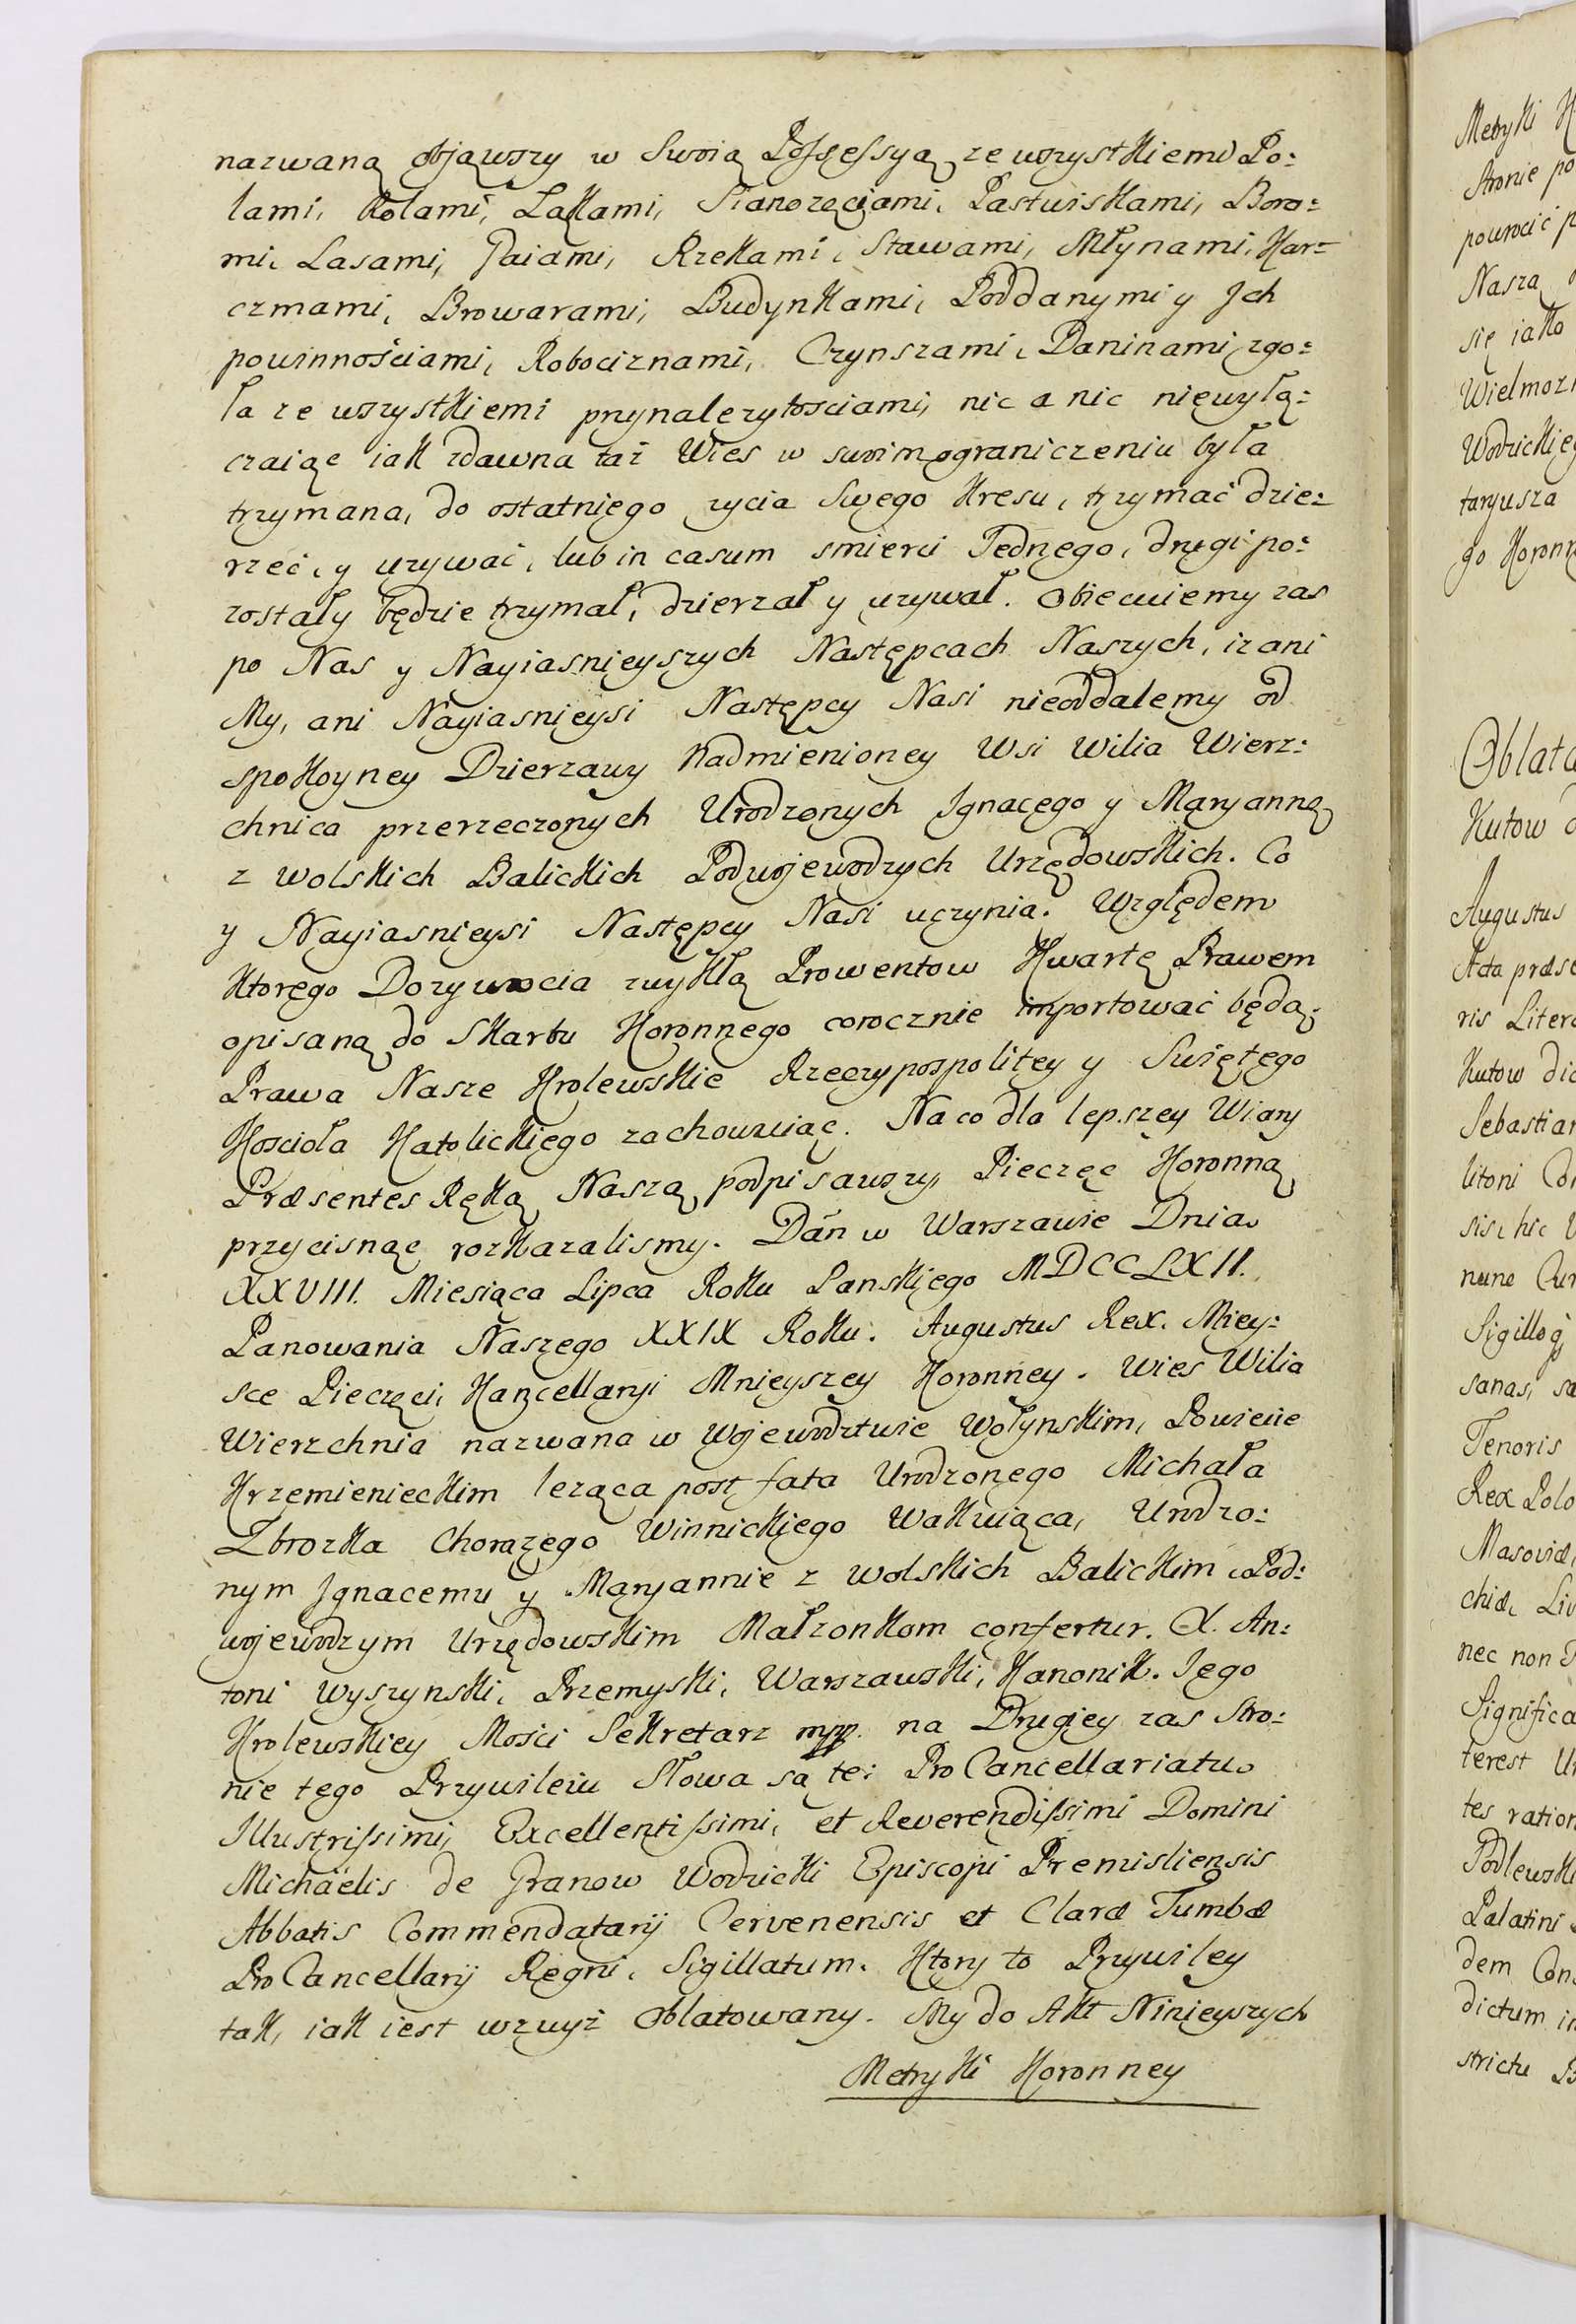 nazwaną objąwszy w Swoią Possessyą ze wszystkiemi Po:
lami, Rolami, Łąkami, Sianozęciami, Pastwiskami, Boro:
mi, Lasami, Gaiami, Rzekami, Stawami, Młynami, Kar=
czmami, Browarami, Budynkami, Poddanymi y Ich
powinnościami, Robociznami, Czynszami, Daninami, zgo:
ła ze wszystkiemi przynalezytosciami, nic a nic niewyłą:
czaiąc iak zdawna taż Wies w swoim ograniczeniu była
trzymana, do ostatniego zycia Swego Kresu, trzymać dzie:
rzeć, y uzywać, lub in casum smierci Jednego, drugi po:
zostały będzie trzymał, dzierzał y uzywał. Obiecuiemy zas
po Nas y Nayiasnieyszych Następcach Naszych, iz ani
My, ani Nayiasnieysi Następcy Nasi nieoddalemy od
spokoyney Dzierzawy Nadmienioney Wsi Wilia Wierz:
chnica przerzeczonych Urodzonych Ignacego y Maryanną
z Wolskich Balickich Podwojewodzych Urzędowskich. Co
y Nayiasnieysi Następcy Nasi uczynia. Względem
Ktorego Dozywocia zwykłą Prowentow Kwartę Prawem
opisaną do Skarbu Koronnego corocznie importować będą.
Prawa Nasze Krolewskie Rzeczypospolitey y Swiętego
Koscioła Katolickiego zachowuiąc. Na co dla lepszey Wiary
Præsentes Ręką Naszą podpisawszy, Pieczęć Koronną
przycisnąc rozkazalismy. Dań w Warszawie Dnia
XXVIII. Miesiąca Lipca Roku Panskiego MDCCLXII.
Panowania Naszego XXIX Roku. Augustus Rex. Miey:
sce Pieczęci, Kancellaryi Mnieyszey Koronney. Wies Wilia
Wierzchnia nazwana w Wojewodztwie Wołynskim, Powiecie
Krzemienieckim leząca post fata Urodzonego Michała
Zbrozka Chorązego Winnickiego Wakuiąca, Urodzo:
nym Ignacemu y Maryannie z Wolskich Balickim, Pod:
wojewodzym Urzędowskim Małzonkom confertur. X. An:
toni Wyszynski, Przemyski, Warszawski, Kanonik. Jego
Krolewskiey Mości Sekretarz mpp. na Drugiey zas Stro:
nie tego Przywileiu Słowa są te: Pro Cancellariatu
Illustrissimi, Excellentissimi, et Reverendissimi Domini
Michäelis de Granow Wodzicki Episcopi Premisliensis
Abbatis Commendatarij Cervenensis et Claræ Tumbæ
Pro Cancellarij Regni, Sigillatum. Ktory to Przywiley
tak, iak iest wzwyż Oblatowany. My do Akt Ninieyszych
Metryki Koronney
Metryki
Stronie po
powrocić
Nasza
się iako
Wielmoz
Wodzickieg
taryusza
go Koronn
Oblata
Kutow
Augustus
Acta præse
ris Litera
Kutow dic
Sebastian
litoni
sis, hic
nunc Cur
Sigillog
sanas, sa
Tenoris
Rex Polo
Masoviæ,
chiæ, Liv
nec non
Significa
terest
tes ration
Podlewski
Palatini
dem Con
dictum in
strictu